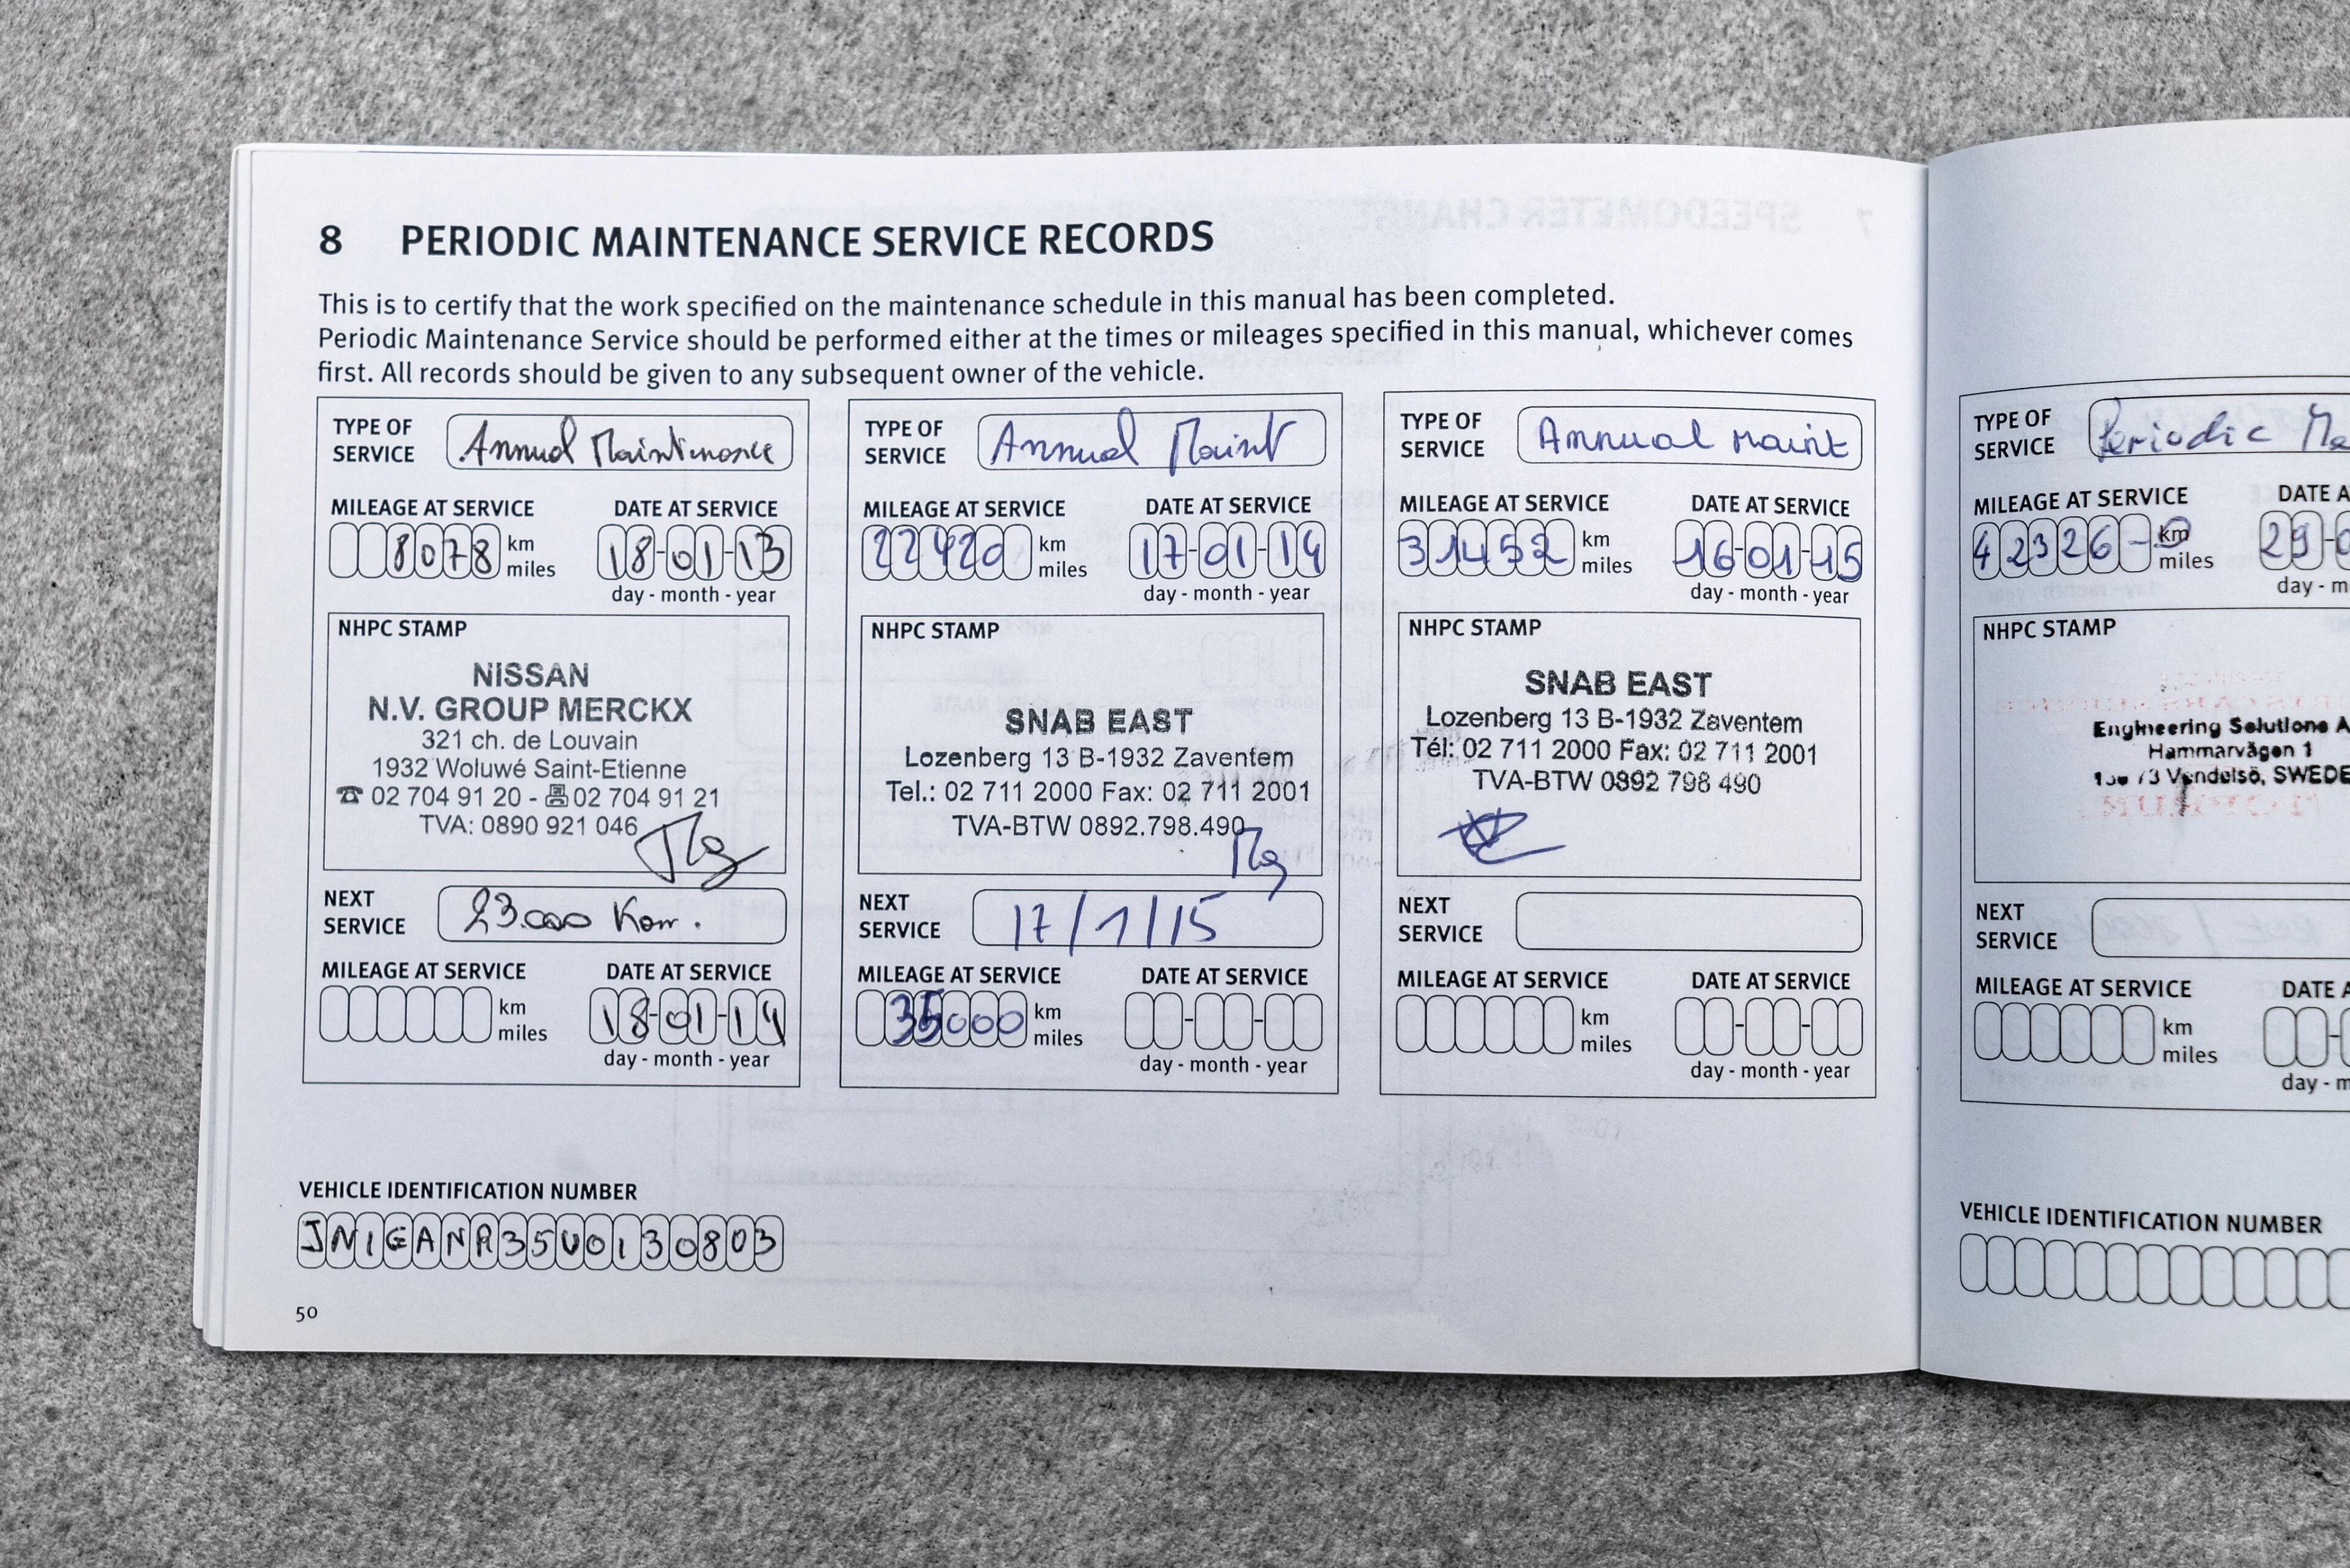 8 PERIODIC MAINTENANCE SERVICE RECORDS
This is to certify that the work specified on the maintenance schedule in this manual has been completed.
Periodic Maintenance Service should be performed either at the times or mileages specified in this manual, whichever comes
first. All records should be given to any subsequent owner of the vehicle.
TYPE OF
SERVICE
Annual Maintenance
MILEAGE AT SERVICE DATE AT SERVICE
8078 km
miles
18-01-13
day - month - year
NHPC STAMP
NISSAN
N.V. GROUP MERCKX
321 ch. de Louvain
1932 Woluwé Saint-Etienne
☎ 02 704 91 20 - 02 704 91 21
TVA: 0890 921 046
NEXT
SERVICE
23.000 Km.
MILEAGE AT SERVICE DATE AT SERVICE
km
miles
18-01-14
day - month - year
TYPE OF
SERVICE
Annual Maint
MILEAGE AT SERVICE DATE AT SERVICE
22420 km
miles
17-01-14
day - month - year
NHPC STAMP
SNAB EAST
Lozenberg 13 B-1932 Zaventem
Tel.: 02 711 2000 Fax: 02 711 2001
TVA-BTW 0892.798.490
NEXT
SERVICE
17/1/15
MILEAGE AT SERVICE DATE AT SERVICE
35000 km
miles
day - month - year
TYPE OF
SERVICE
Annual maint
MILEAGE AT SERVICE DATE AT SERVICE
31452 km
miles
16-01-15
day - month - year
NHPC STAMP
SNAB EAST
Lozenberg 13 B-1932 Zaventem
Tél: 02 711 2000 Fax: 02 711 2001
TVA-BTW 0892 798 490
NEXT
SERVICE
MILEAGE AT SERVICE DATE AT SERVICE
km
miles
day - month - year
VEHICLE IDENTIFICATION NUMBER
JN1GANR35U0130803
50
TYPE OF
SERVICE
Periodic Ma
MILEAGE AT SERVICE DATE A
42326 - km
miles
29-0
day - m
NHPC STAMP
Engineering Solutions A
Hammarvägen 1
Vendelsö, SWEDE
NEXT
SERVICE
MILEAGE AT SERVICE DATE A
km
miles
day - m
VEHICLE IDENTIFICATION NUMBER